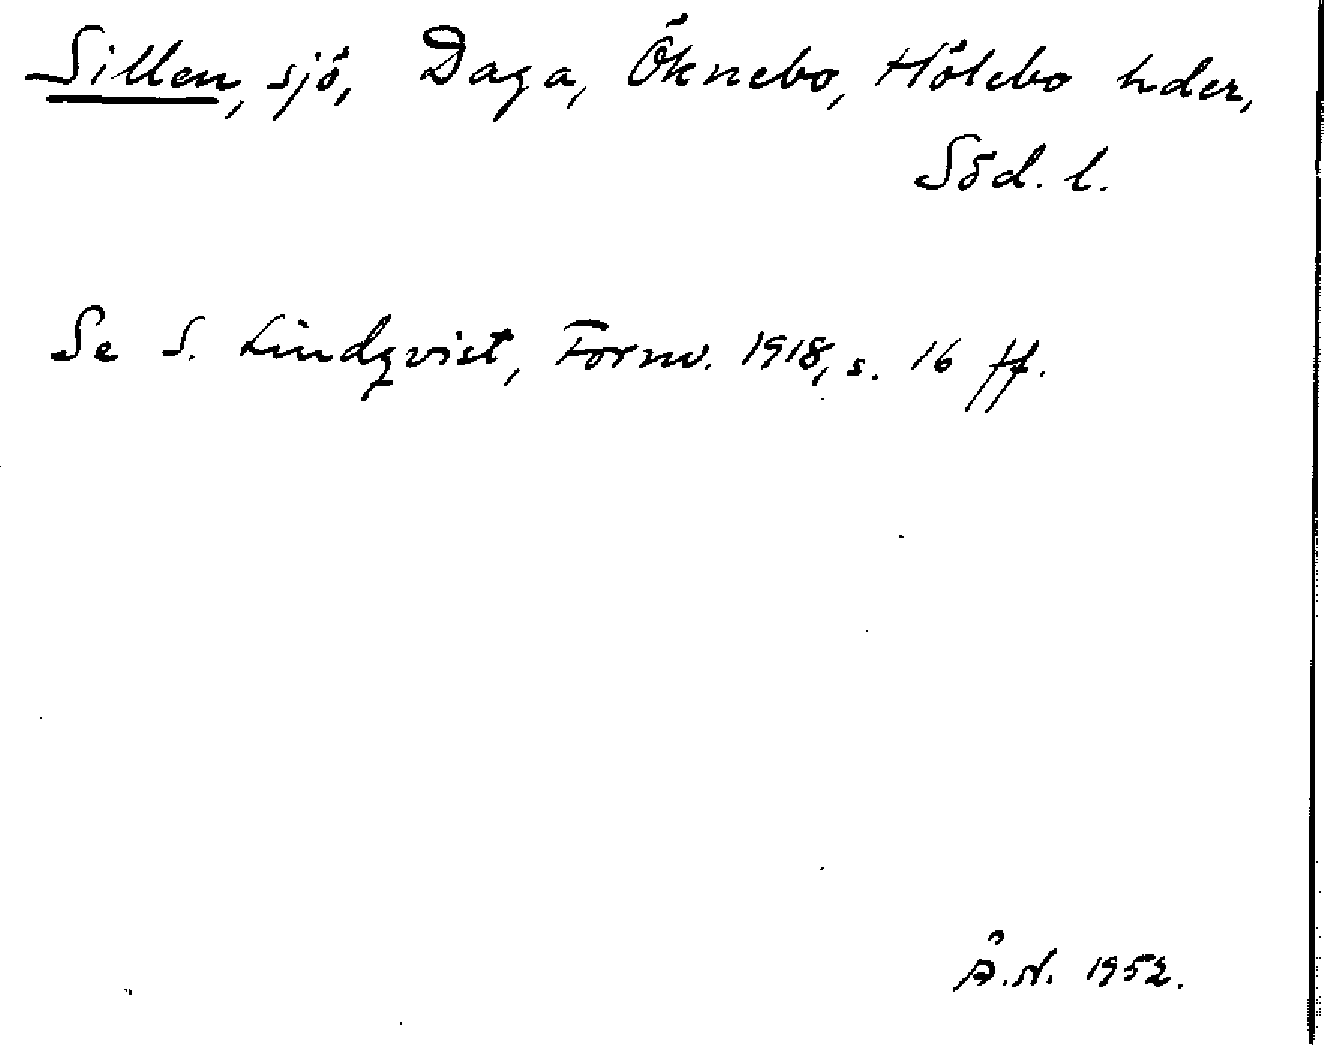 Sillen, sjö, Daga, Öknebo, Hölebo hder,
Söd. l.
Se S. Lindqvist, Fornv. 1918, s. 16 ff.
Å.N. 1952.